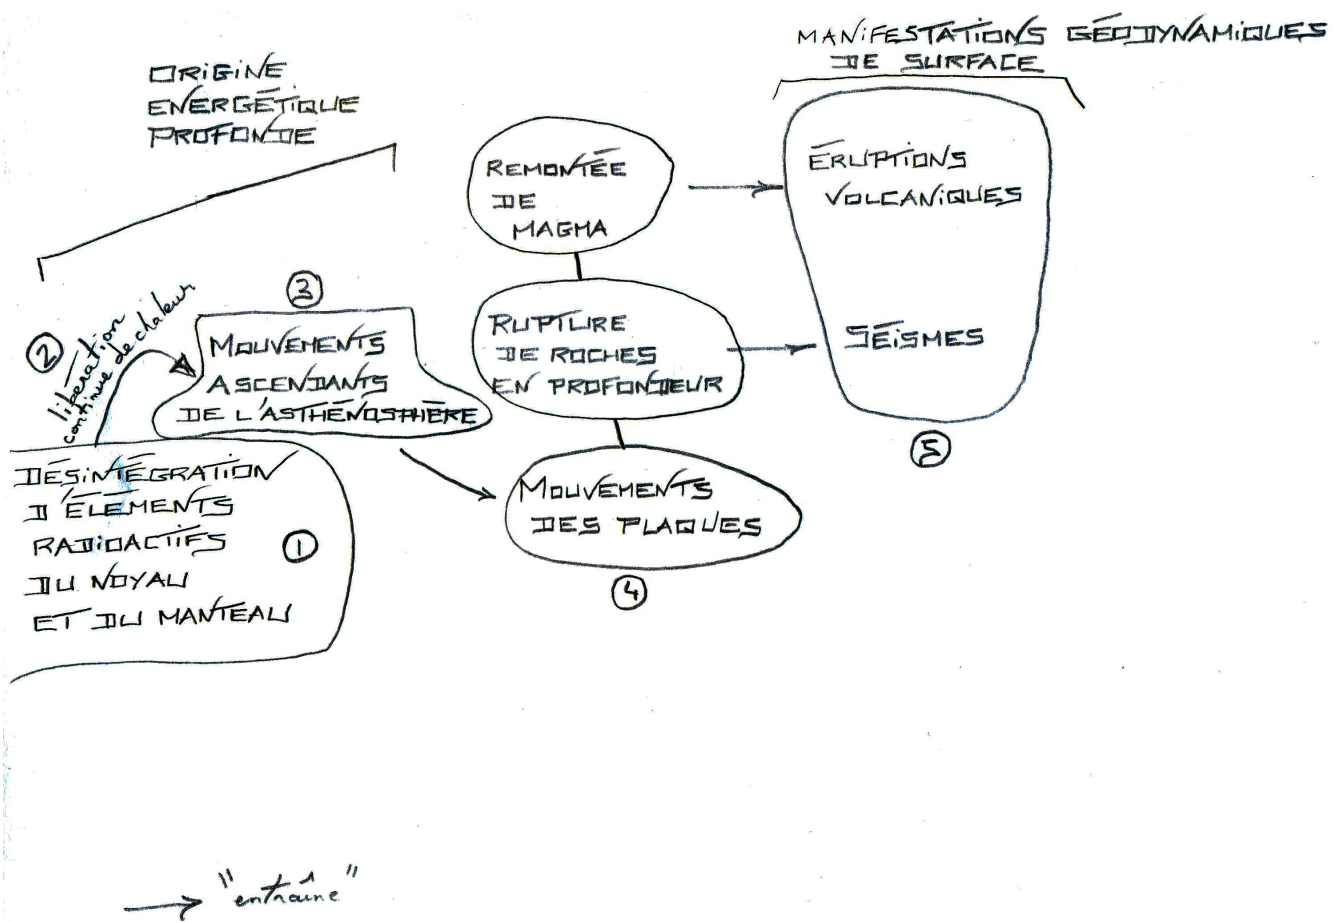 MANIFESTATIONS GÉODYNAMIQUES
DE SURFACE
ORIGINE
ENERGÉTIQUE
PROFONDE
REMONTÉE
DE
MAGMA
ÉRUPTIONS
VOLCANIQUES
3
2
libération
continue de chaleur
MOUVEMENTS
ASCENDANTS
DE L'ASTHÉNOSPHÈRE
RUPTURE
DE ROCHES
EN PROFONDEUR
SÉISMES
5
DÉSINTÉGRATION
D'ÉLÉMENTS
RADIOACTIFS
DU NOYAU
ET DU MANTEAU
1
MOUVEMENTS
DES PLAQUES
4
"entraîne"